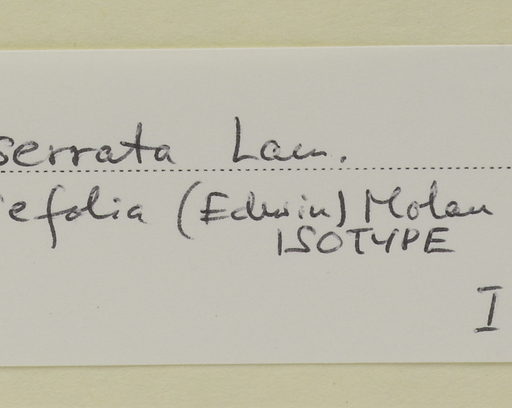 serrata Lam.
efolia (Edwin) Molau
ISOTYPE
I